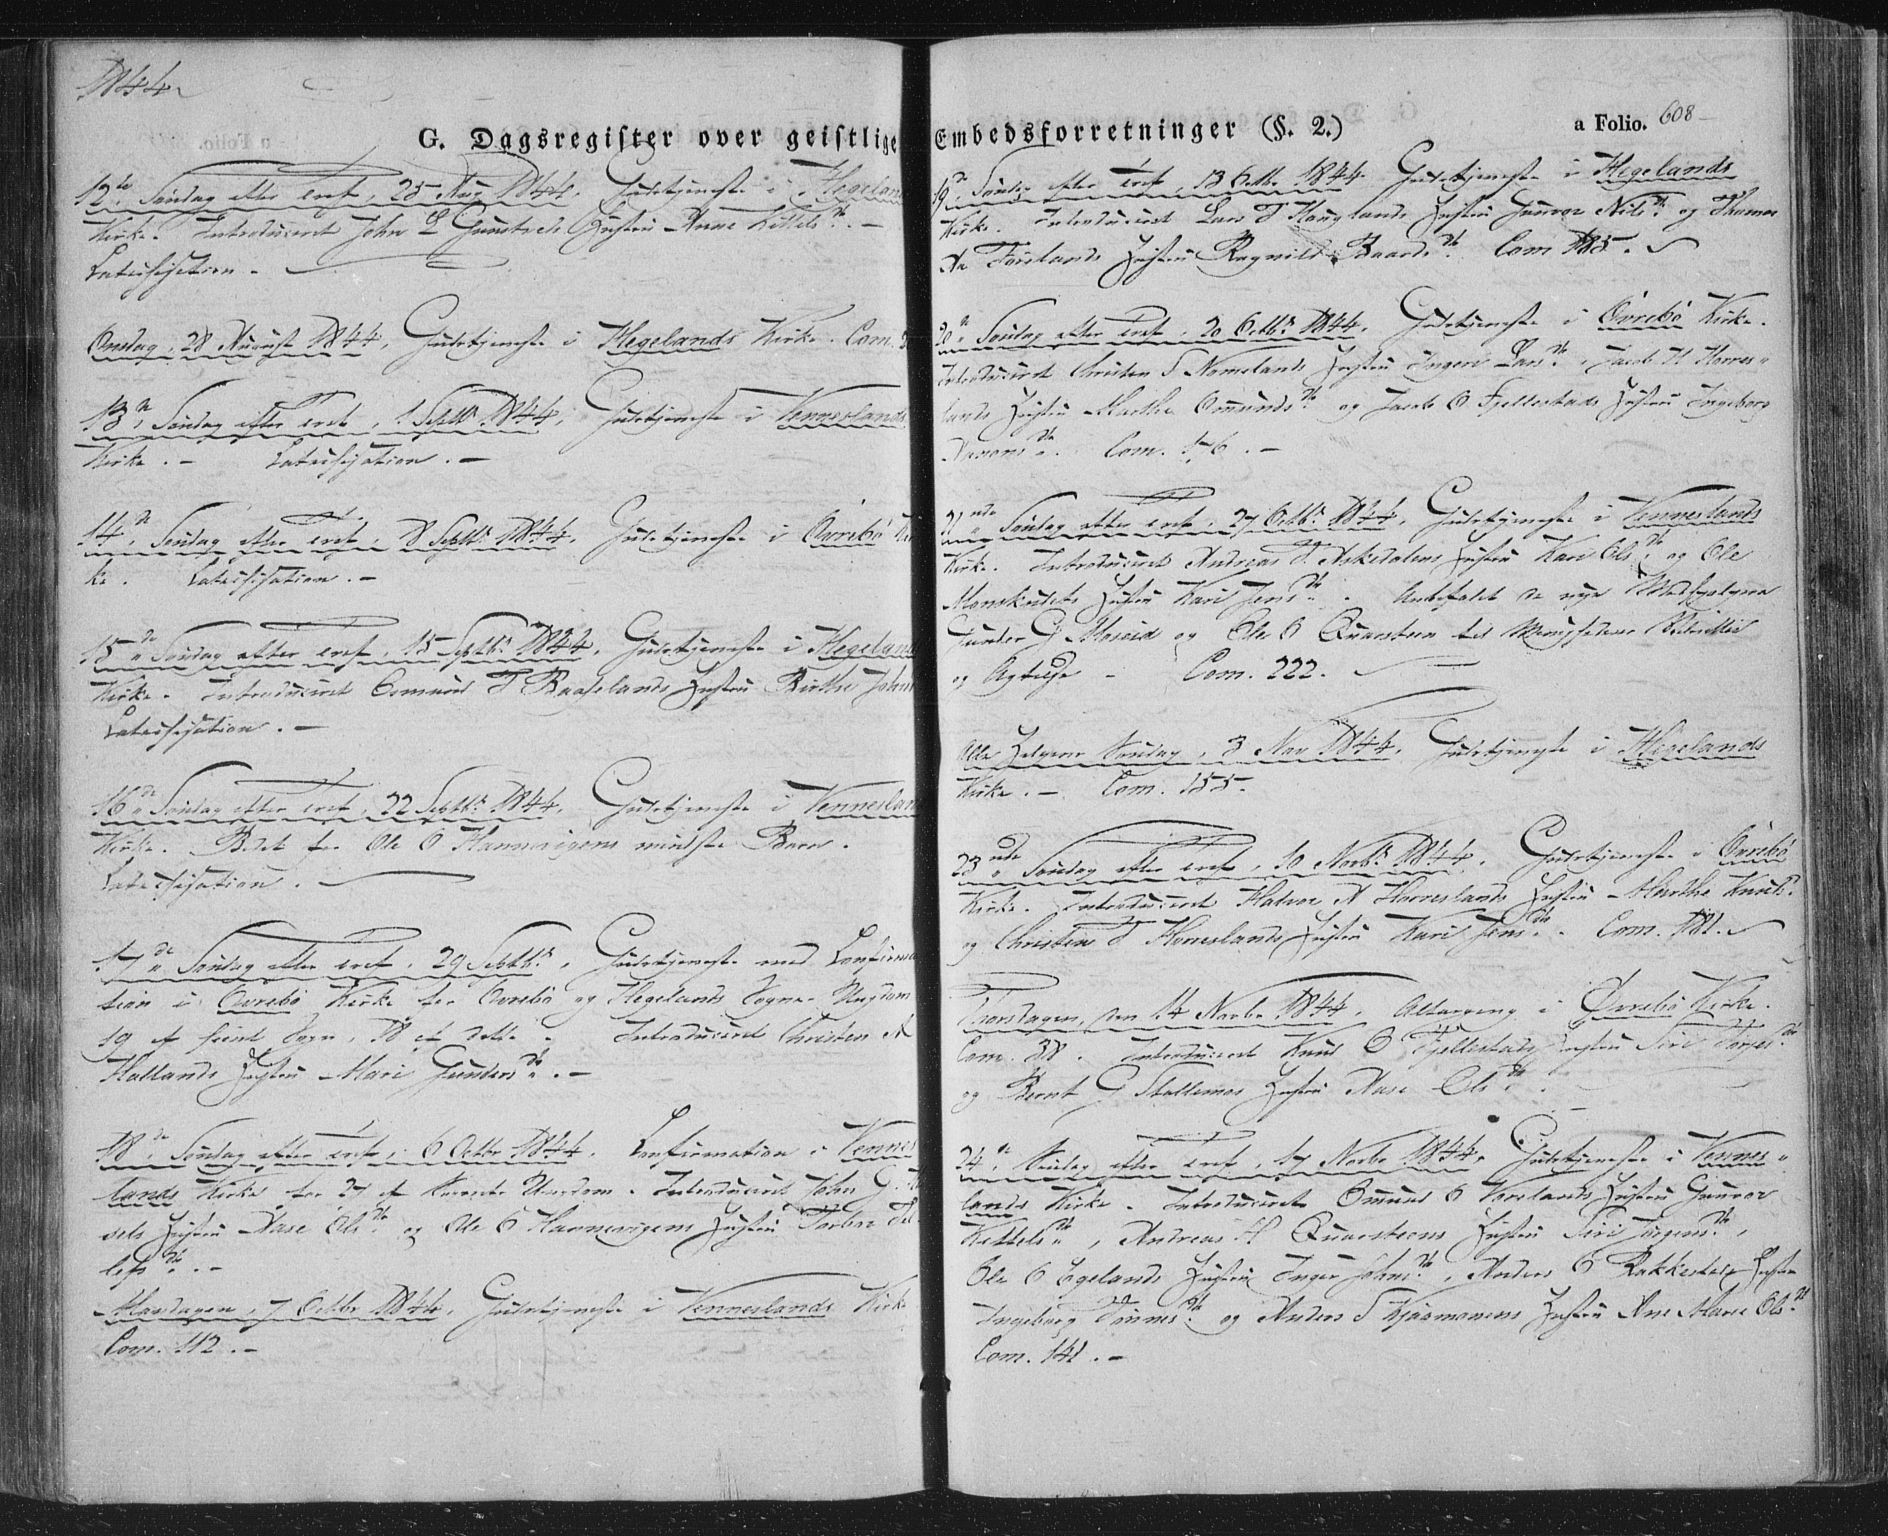 1844
G. Dagsregister over geistlige
12te Søndag efter Tref, 25 Aug 1844. Gudstjeneste i Hegeland
Kirke. Introduceret John Hustru Anne Kittelsdtr. -
Catechisation. -
Onsdag, 28 August 1844, Gudstjeneste i Hegelands Kirke. Com.
13de Søndag efter Tref, 1 Septbr 1844, Gudstjeneste i Venneslands
Kirke. - Catechisation. -
14de Søndag efter Tref, 8 Septbr 1844, Gudstjeneste i Øvrebø Kir
ke. Catechisation. -
15de Søndag efter Tref, 15 Septbr 1844, Gudstjeneste i Hegeland
Kirke. Introduceret Osmund T Hustru Birthe Johns
Catechisation. -
16de Søndag efter Tref, 22 Septbr 1844, Gudstjeneste i Vennesland
Kirke. Bedet for Ole O mindste Barn.
Catechisation. -
17de Søndag efter Tref, 29 Septbr, Gudstjeneste med Confirma
tion i Øvrebø Kirke for Øvrebø og Hegelands Sogne Ungdom
19 af første Sogn, 18 af dette. Introduceret Christen A
Hallands Hustru Mari Gundersdtr. -
18de Søndag efter Tref, 6 Octbr 1844. Confirmation i Vennes
lands Kirke for 27 af Ungdom. Introduceret John G.
Hustru Aase Olsdtr og Ole O Hustru Torbor Tel
lefsdtr. -
Mandagen, 7 Octbr 1844, Gudstjeneste i Venneslands Kirke
Com. 112. -
Embedsforretninger (§. 2.)
a Folio. 608
19de Søndag efter Tref, 13 Octbr 1844. Gudstjeneste i Hegelands
Kirke. Introduceret Lars T Hauglands Hustru Gunvor Nilsdtr og Thomas
Aa Hustru Ragnild Baardsdtr. Com 185.
20de Søndag efter Tref, 20 Octbr 1844. Gudstjeneste i Øvrebø Kirke.
Introduceret Christen S Nomelands Hustru Ingeri Larsdtr, Jacob H Horres
lands Hustru Marthe Omundsdtr og Jacob O Fjellestads Hustru Ingeborg
Aanonsdtr. Com. 1 6. -
21nde Søndag efter Tref, 27 Octbr 1844, Gudstjeneste i Venneslands
Kirke. Introduceret Andreas T Askedalens Hustru Kari Olsdtr og Ole
Hustru Kari Jensdtr. Anbefalet de nye
Gunder G Moseid og Ole O Quarstein til
og Agtelse - Com. 222.
Alle Helgens Søndag, 3 Nov 1844, Gudstjeneste i Hegelands
Kirke. - Com. 155.
23nde Søndag efter Tref, 10 Novbr 1844, Gudstjeneste i Øvrebø
Kirke. Introduceret Halvor A Horreslands Hustru Marthe Knuds
og Christen T Horreslands Hustru Kari Jensdtr. Com. 181.
Thorsdagen, den 14 Novbr 1844, Altergang i Øvrebø Kirke.
Com. 38. Introduceret Knud O Fjellestads Hustru Siri Torjesdtr
og Bernt G Stallemos Hustru Aase Olsdtr.
24de Søndag efter Tref, 17 Novbr 1844, Gudstjeneste i Vennes
lands Kirke. Introduceret Omund O Hustru Gunvor
Kittelsdtr, Andreas H Quarsteens Hustru Siri Jørgensdtr,
Ole O Egelands Hustru Inger Johnsdtr, Anders O Rakkestads Hustru
Ingeborg Tønnesdtr og Anders S Hustru Ane Marie Olsdtr
Com. 141. -